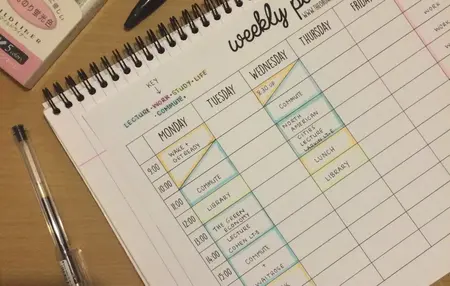 weekly
KEY
LECTURE·WORK·STUDY·LIFE
COMMUTE·
MONDAY
TUESDAY
WEDNESDAY
THURSDAY
FRIDAY
9:00
10:00
12:00
13:00
14:00
15:00
WAKE +
GET READY
COMMUTE
LIBRARY
THE GREEN
ECONOMY
LECTURE
COHEN LT B
COMMUTE
+
WAITROSE
9:30 UP
COMMUTE
NORTH
AMERICAN
CITIES
LECTURE
LUNCH
LIBRARY
WORK